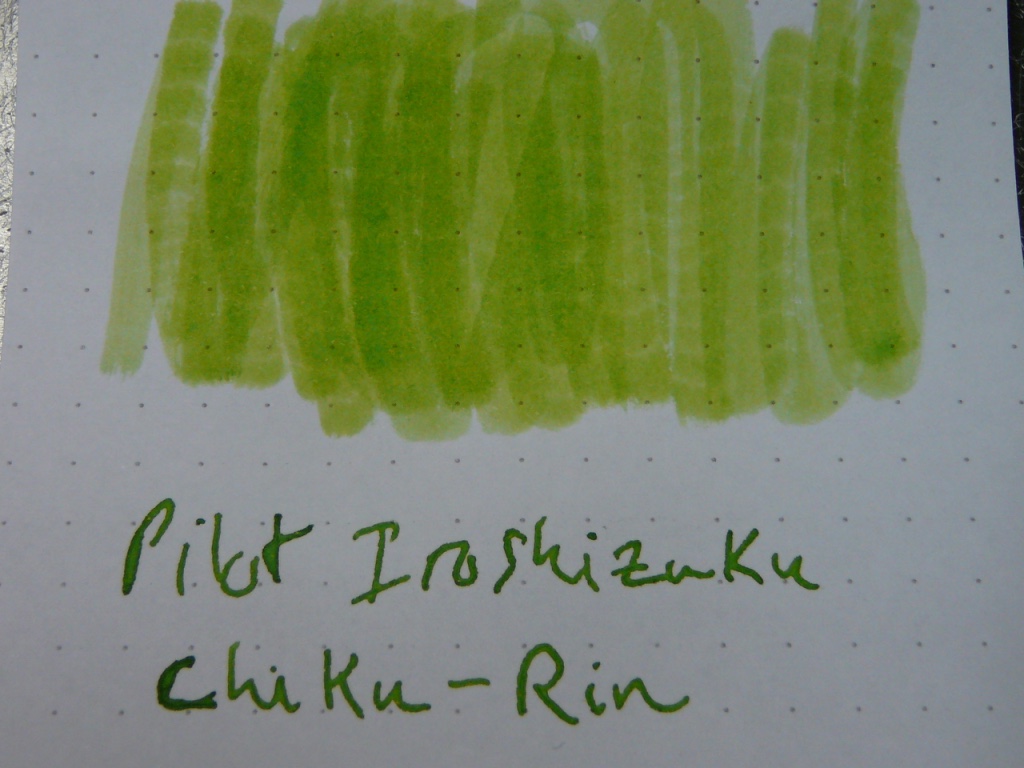 Pilot Iroshizuku
Chiku-Rin